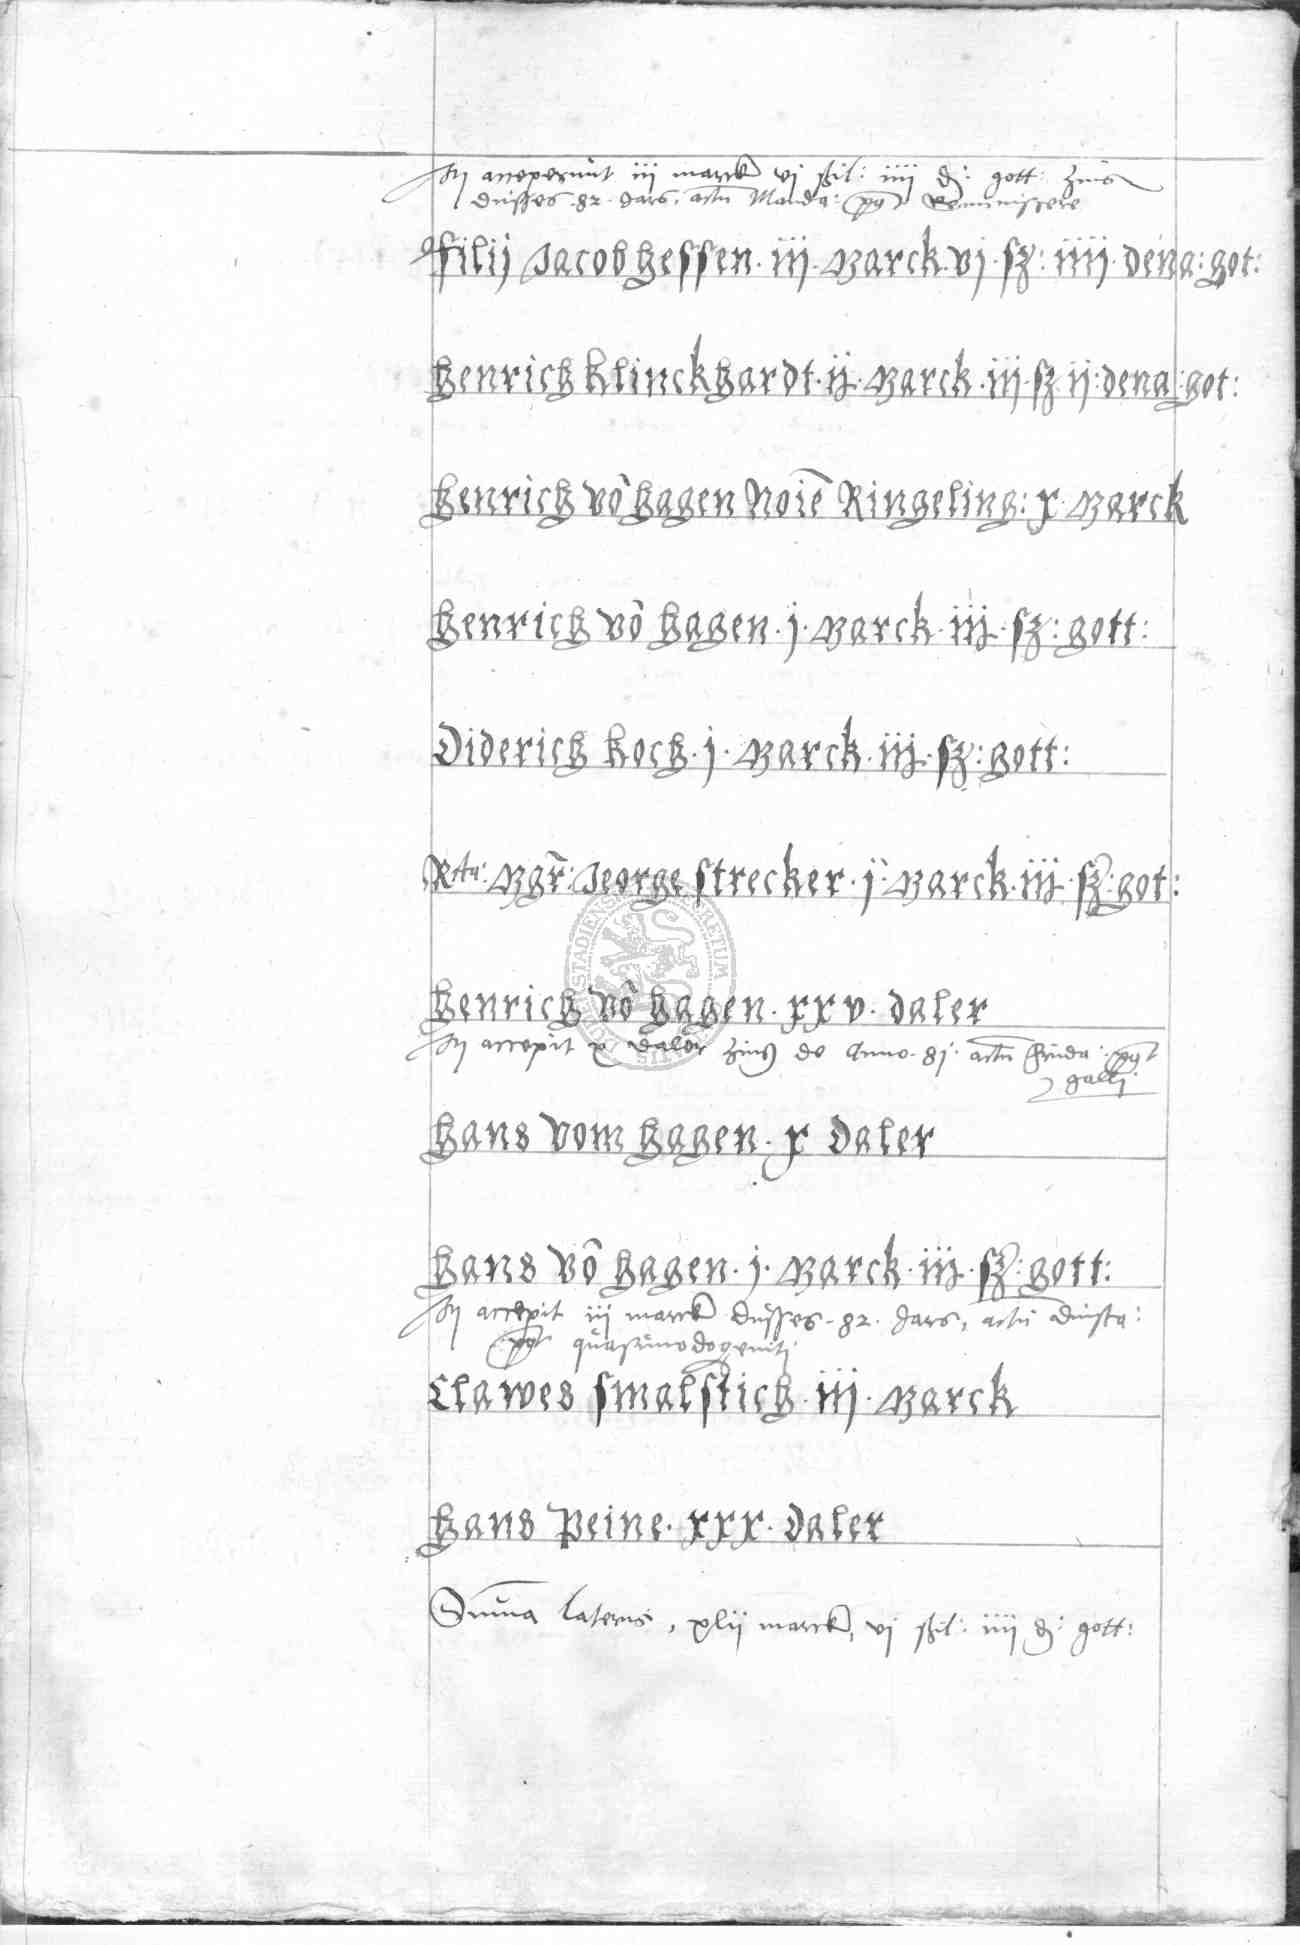 acceperunt iii marck vj ßil: iiii d: gott: Zins
dusses .82. Jars, actu Manda: post Reminiscere
filij Jacob hessen . iij . Marck . vj . sz: iiij . dena: got:
henrich klinckhardt . ij . Marck . iij . sz ij: dena: got:
henrich vō hagen Noiē Ringeling: x . Marck
henrich vō hagen . j . Marck . iij . sz: gott:
Diderich koch . j . Marck . iij . sz: gott:
Rta: Mgr: Jeorge strecker . j . Marck . iij . sz: got:
henrich vō hagen . xxv . daler
accepit x daler Zins de Anno . 81 . actu post
galli
hans vom hagen . x daler
hans vō hagen . j . Marck . iij . sz: gott:
accepit iij marck dusses . 82 . Jars, actu dinsta:
post quasimodogeniti
Clawes smalstich . iij . Marck
hans Peine . xxx . daler
Suma lateris, xlij marck, vj ßil: iiij d: gott: